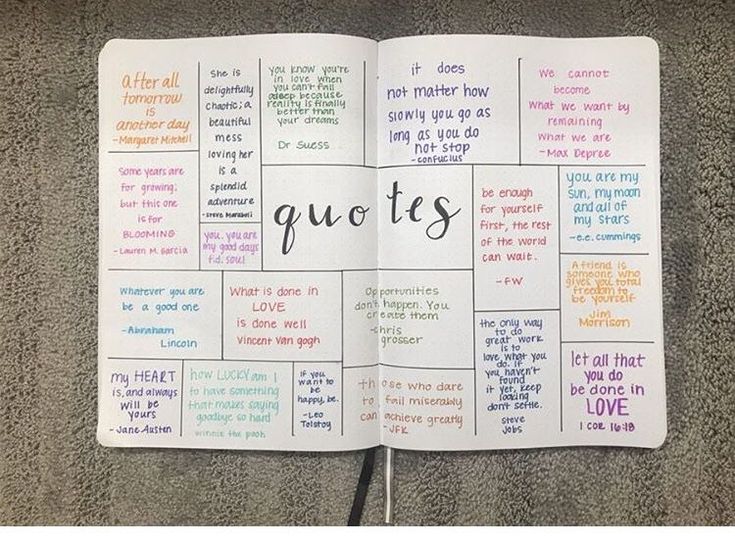 After all
tomorrow
is
another day
- Margaret Mitchell
She is
delightfully
chaotic; a
beautiful
mess
loving her
is a
splendid
adventure
- Steve Maraboli
you know you're
in love when
you can't fall
asleep because
reality is finally
better than
your dreams
Dr Suess
it does
not matter how
slowly you go as
long as you do
not stop
- confucius
We cannot
become
what we want by
remaining
what we are
- Max Depree
Some years are
for growing;
but this one
is for
BLOOMING
- Lauren M. Garcia
you. you are
my good days
f.d. soul
quotes
be enough
for yourself
first, the rest
of the world
can wait.
- FW
you are my
sun, my moon
and all of
my stars
- e.e. cummings
Whatever you are
be a good one
- Abraham
Lincoln
What is done in
LOVE
is done well
Vincent Van gogh
Opportunities
don't happen. You
create them
- chris
grosser
A friend is
someone who
gives you total
freedom to
be yourself
Jim
Morrison
the only way
to do
great work
is to
love what you
do. If
you haven't
found
it yet, keep
looking
don't settle.
Steve
Jobs
my HEART
is, and always
will be
yours
- Jane Austen
how LUCKY am I
to have something
that makes saying
goodbye so hard
winnie the pooh
If you
want to
be
happy, be.
- Leo
Tolstoy
those who dare
to fail miserably
can achieve greatly
- JFK
let all that
you do
be done in
LOVE
1 COR 16:18